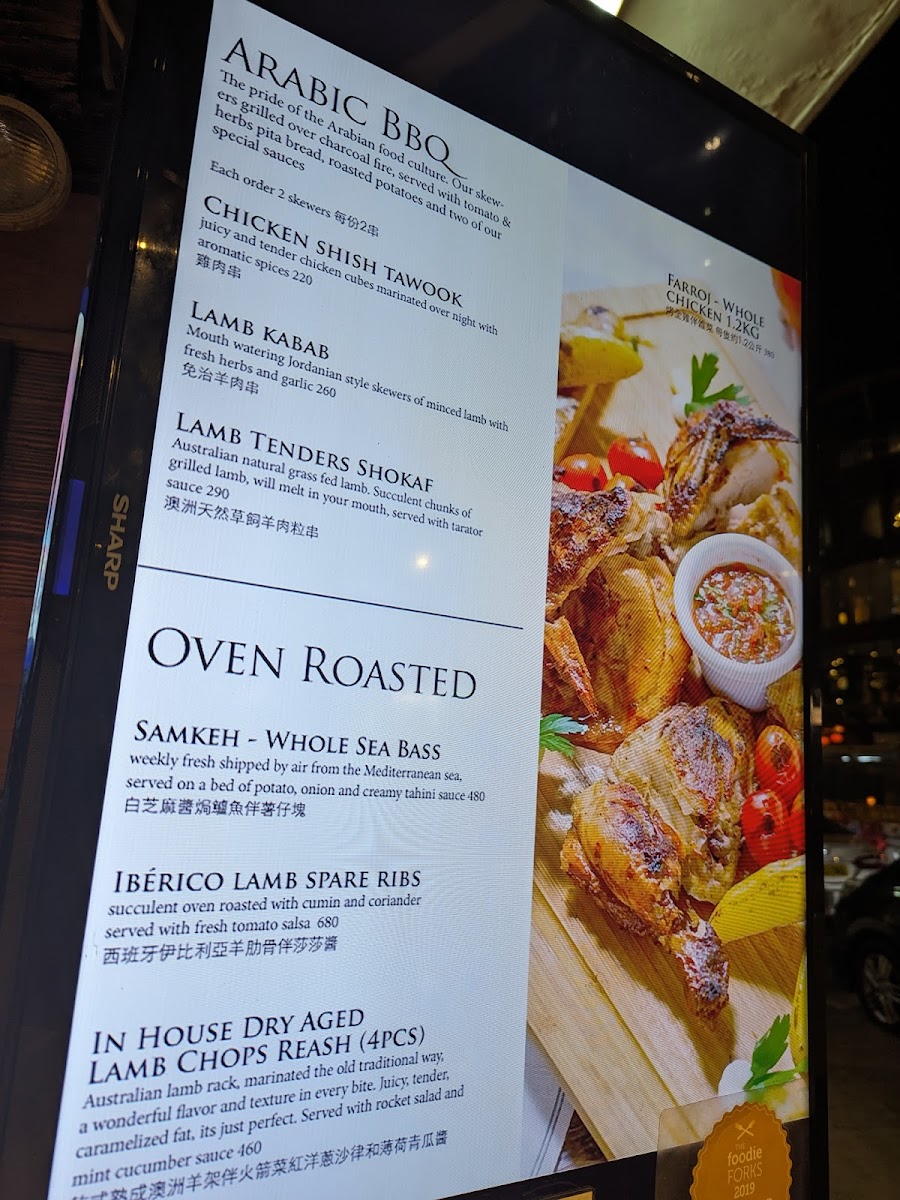 ARABIC BBQ
The pride of the Arabian food culture. Our skew-
ers grilled over charcoal fire, served with tomato &
herbs pita bread, roasted potatoes and two of our
special sauces
Each order 2 skewers 每份2串
CHICKEN SHISH TAWOOK
juicy and tender chicken cubes marinated over night with
aromatic spices 220
雞肉串
LAMB KABAB
Mouth watering Jordanian style skewers of minced lamb with
fresh herbs and garlic 260
免治羊肉串
LAMB TENDERS SHOKAF
Australian natural grass fed lamb. Succulent chunks of
grilled lamb, will melt in your mouth, served with tarator
sauce 290
澳洲天然草飼羊肉粒串
OVEN ROASTED
SAMKEH - WHOLE SEA BASS
weekly fresh shipped by air from the Mediterranean sea,
served on a bed of potato, onion and creamy tahini sauce 480
白芝麻醬焗鱸魚伴薯仔塊
IBÉRICO LAMB SPARE RIBS
succulent oven roasted with cumin and coriander
served with fresh tomato salsa 680
西班牙伊比利亞羊肋骨伴莎莎醬
IN HOUSE DRY AGED
LAMB CHOPS REASH (4PCS)
Australian lamb rack, marinated the old traditional way,
a wonderful flavor and texture in every bite. Juicy, tender,
caramelized fat, its just perfect. Served with rocket salad and
mint cucumber sauce 460
熟成澳洲羊架伴火箭菜紅洋蔥沙律和薄荷青瓜醬
FARROJ - WHOLE
CHICKEN 1.2KG
烤全雞伴薯菜 每隻約1.2公斤 380
SHARP
THE
foodie
FORKS
2019